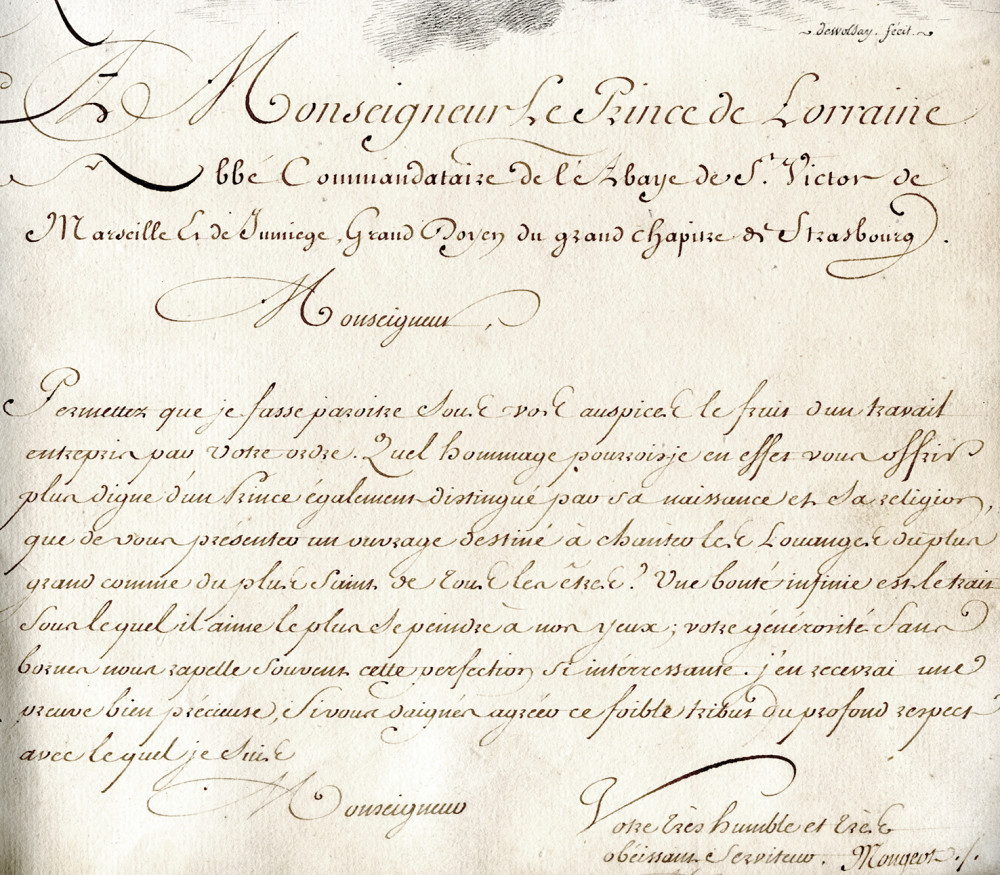 dewolsay. fecit.
A Monseigneur Le Prince de Lorraine
Abbé Commandataire de l'é Abaye de St. Victor de
Marseille Et de Jumiege, Grand Doyen du grand Chapitre de Strasbourg.
Monseigneur,
Permettez que je fasse paroitre Sous vos auspices le fruit d'un travail
entrepris par votre ordre. Quel hommage pourrois-je en effet vous offrir
plus digne d'un Prince également distingué par sa naissance et Sa religion,
que de vous présenter un ouvrage destiné à chanter les Louanges du plus
grand comme du plus Saint de tous les êtres? Une bonté infinie est le trait
Sous lequel il aime le plus Se peindre à nos yeux; votre générosité Sans
bornes nous rapelle Souvent cette perfection Si intérressante. j'en recevrai une
preuve bien précieuse, Si vous daignés agréer ce foible tribut du profond respect
avec lequel je Suis
Monseigneur
Votre très humble et très
obéissant Serviteur. Mongeot